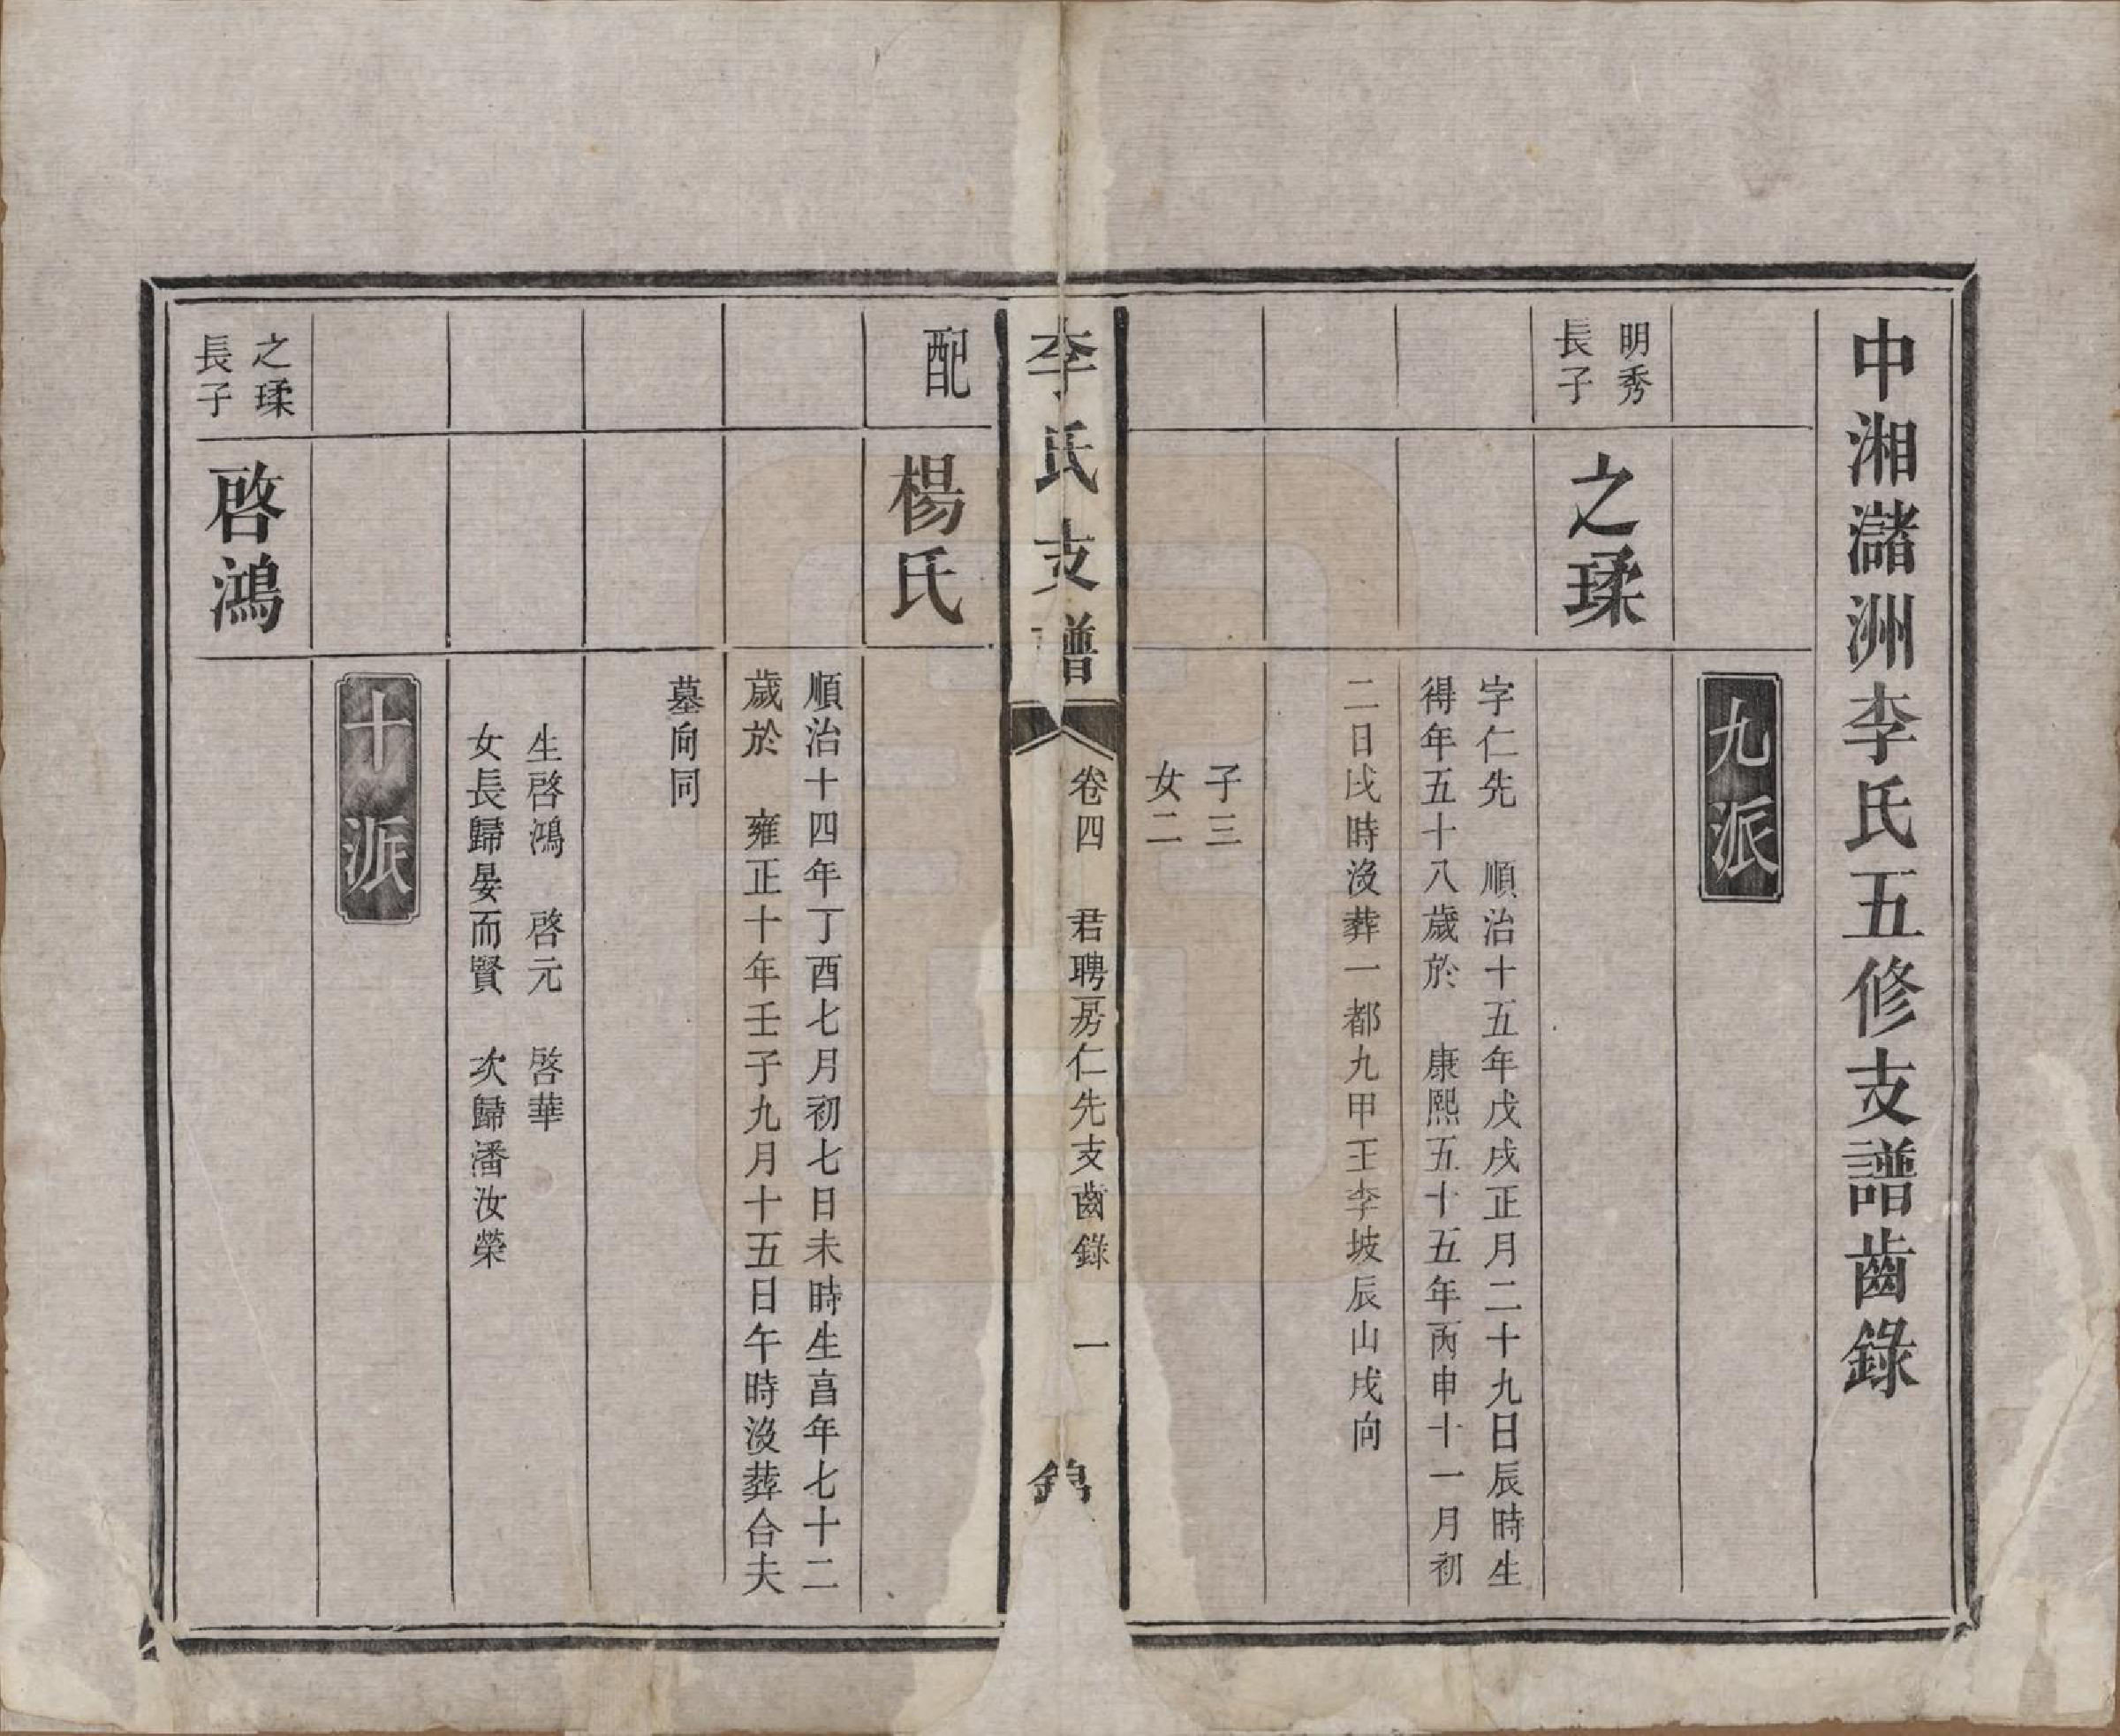 中湘瀦洲李氏五修支譜齒錄
九派
明秀
長子
之瑈
字仁先　順治十五年戊戌正月二十九日辰時生
得年五十八歲於　康熙五十五年丙申十一月初
二日戌時沒葬一都九甲王李坡辰山戌向
子三
女二
李氏支譜
卷四　君聘房仁先支齒錄　一
配
楊氏
順治十四年丁酉七月初七日未時生亯年七十二
歲於　雍正十年壬子九月十五日午時沒葬合夫
墓向同
生啓鴻　啓元　啓華
女長歸晏而賢　次歸潘汝榮
十派
之瑈
長子
啓鴻